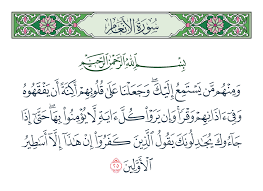 سُورَةُ الأَنْعَامِ
بِسْمِ اللَّهِ الرَّحْمَٰنِ الرَّحِيمِ
وَمِنْهُم مَّن يَسْتَمِعُ إِلَيْكَ ۖ وَجَعَلْنَا عَلَىٰ قُلُوبِهِمْ أَكِنَّةً أَن يَفْقَهُوهُ
وَفِىٓ ءَاذَانِهِمْ وَقْرًا ۚ وَإِن يَرَوْا۟ كُلَّ ءَايَةٍ لَّا يُؤْمِنُوا۟ بِهَا ۚ حَتَّىٰٓ إِذَا
جَآءُوكَ يُجَٰدِلُونَكَ يَقُولُ ٱلَّذِينَ كَفَرُوٓا۟ إِنْ هَٰذَآ إِلَّآ أَسَٰطِيرُ
ٱلْأَوَّلِينَ ٢٥